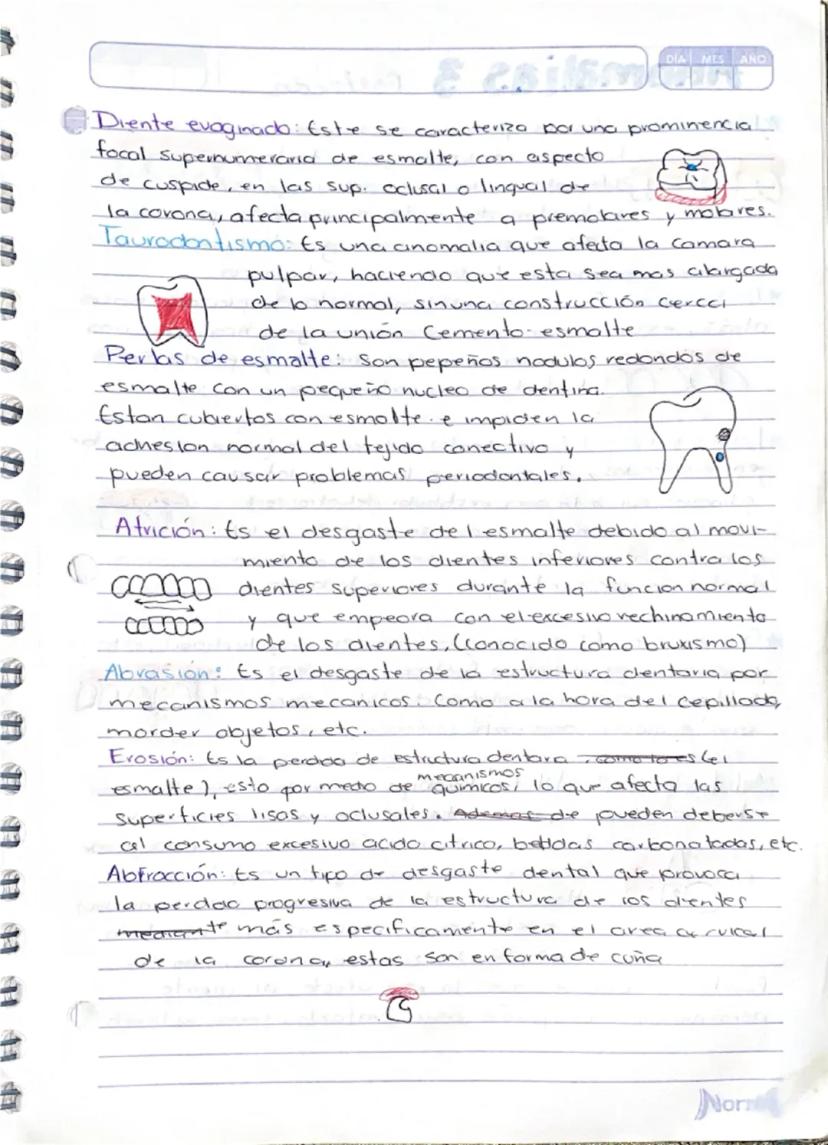 DÍA MES AÑO
Diente evaginado: Este se caracteriza por una prominencia
focal supernumeraria de esmalte, con aspecto
de cuspide, en las sup. oclusal o lingual de
la corona, afecta principalmente a premolares y molares.
Taurodontismo: Es una anomalia que afecta la camara
pulpar, haciendo que esta sea mas alargada
de lo normal, sin una construcción cerca
de la unión Cemento-esmalte
Perlas de esmalte: Son pepeños nodulos redondos de
esmalte con un pequeño nucleo de dentina.
Estan cubiertos con esmalte e impiden la
adhesion normal del tejido conectivo y
pueden causar problemas periodontales.
Atrición: Es el desgaste del esmalte debido al movi-
miento de los dientes inferiores contra los
dientes superiores durante la funcion normal
y que empeora con el excesivo rechinamiento
de los dientes, (conocido como bruxismo)
Abrasión: Es el desgaste de la estructura dentaria por
mecanismos mecanicos. Como a la hora del cepillado,
morder objetos, etc.
Erosión: Es la perdida de estructura dentaria como lo es (el
esmalte), esto por medio de mecanismos químicos, lo que afecta las
superficies lisas y oclusales. Ademas de pueden deberse
al consumo excesivo acido citrico, bebidas carbonatadas, etc.
Abfracción: Es un tipo de desgaste dental que provoca
la perdida progresiva de la estructura de los dientes
mediante más especificamente en el area cervical
de la corona, estas son en forma de cuña
Norma